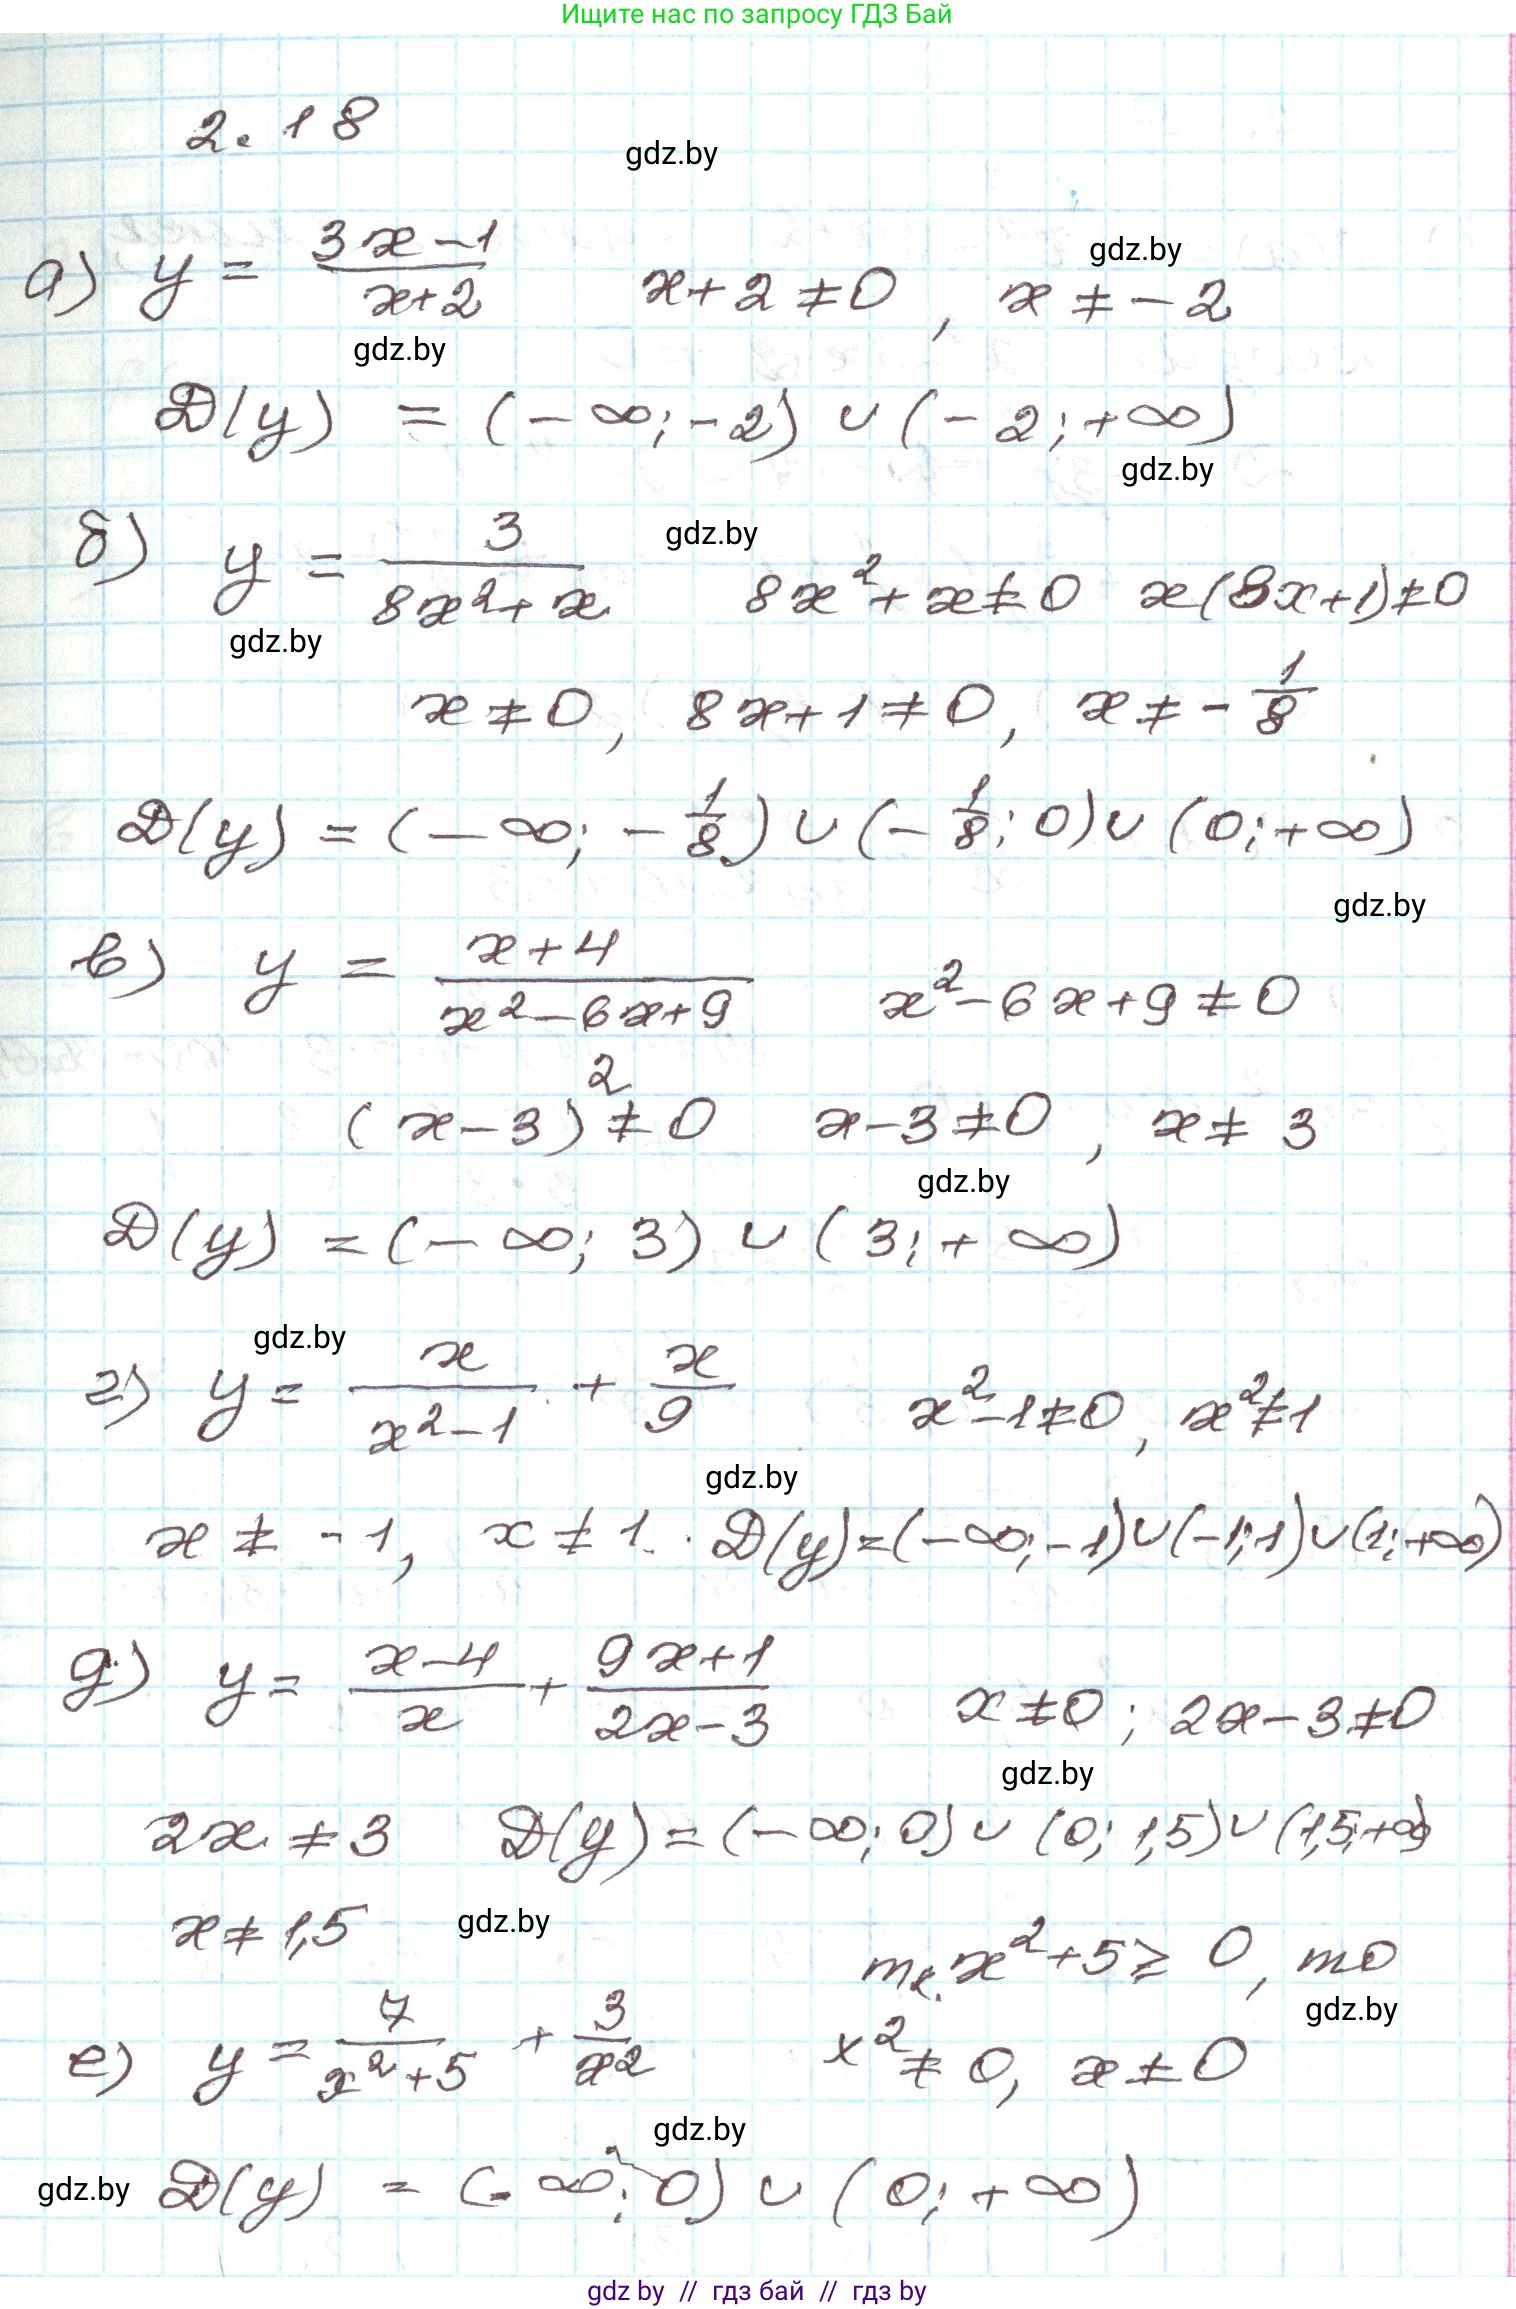 Ищите нас по запросу ГДЗ Бай
2.18
gdz.by
а) y = (3x-1)/(x+2)   x+2≠0, x≠-2
gdz.by
gdz.by
D(y) = (-∞;-2) ∪ (-2;+∞)
gdz.by
б) y = 3/(8x²+x)   8x²+x≠0   x(8x+1)≠0
gdz.by
gdz.by
x≠0, 8x+1≠0, x≠-1/8
D(y) = (-∞; -1/8) ∪ (-1/8; 0) ∪ (0;+∞)
gdz.by
в) y = (x+4)/(x²-6x+9)   x²-6x+9≠0
(x-3)²≠0   x-3≠0, x≠3
gdz.by
D(y) = (-∞; 3) ∪ (3;+∞)
gdz.by
г) y = x/(x²-1) + x/9   x²-1≠0, x²≠1
gdz.by
x≠-1, x≠1. D(y)=(-∞;-1)∪(-1;1)∪(1;+∞)
д) y = (x-4)/x + (9x+1)/(2x-3)   x≠0; 2x-3≠0
gdz.by
2x≠3   D(y)=(-∞;0)∪(0;1,5)∪(1,5;+∞)
x≠1,5
gdz.by
т.к. x²+5≥0, то
gdz.by
е) y = 7/(x²+5) + 3/x²   x²≠0, x≠0
gdz.by
gdz.by
D(y) = (-∞;0) ∪ (0;+∞)
gdz by // гдз бай // гдз by